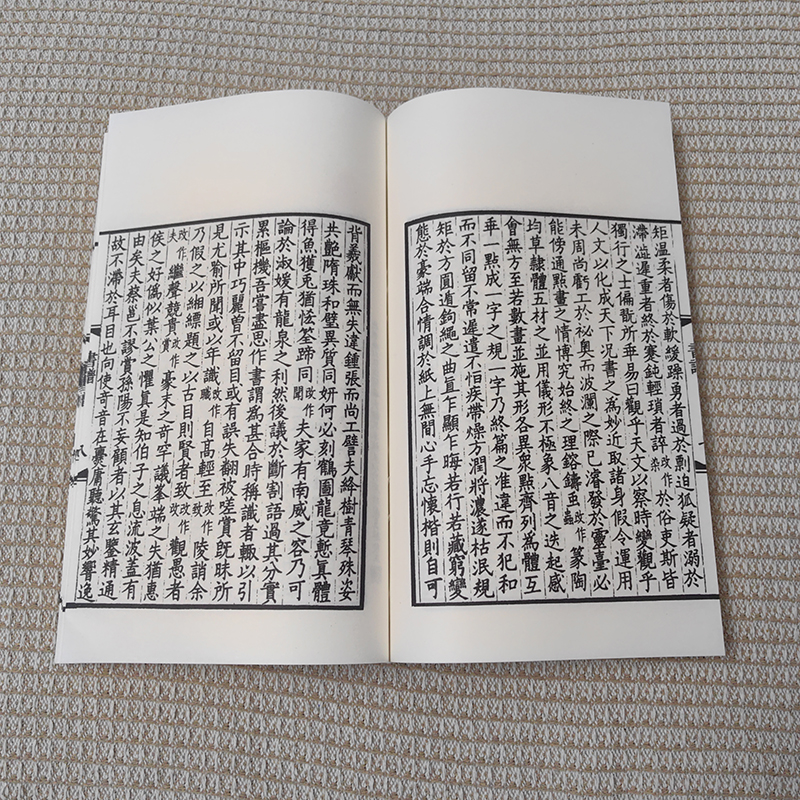 矩温柔者傷於軟緩躁勇者過於剽迫狐疑者溺於
滯澁遲重者終於蹇鈍輕瑣者誶改作染於俗吏斯皆
獨行之士偏翫所乖易曰觀乎天文以察時變觀乎
人文以化成天下况書之為妙近取諸身假令運用
未周尚虧工於祕奥而波瀾之際已濬發於靈臺必
能傍通點畫之情博究始終之理鎔鑄䖝改作蟲篆陶
均草隸體五材之並用儀形不極象八音之迭起感
會無方至若數畫並施其形各異衆點齊列為體互
乖一點成一字之規一字乃終篇之准違而不犯和
而不同留不常遲遣不恒疾帶燥方潤將濃遂枯泯規
矩於方圓遁鉤繩之曲直乍顯乍晦若行若藏窮變
態於豪端合情調於紙上無間心手忘懷楷則自可
背羲獻而無失違鍾張而尚工譬夫絳樹青琴殊姿
共艶隋珠和璧異質同妍何必刻鶴圖龍竟慙真體
得魚獲兎猶恡筌蹄同改作聞夫家有南威之容乃可
論於淑媛有龍泉之利然後議於斷割語過其分實
累樞機吾嘗盡思作書謂為甚合時稱識者輒以引
示其中巧麗曾不留目或有誤失翻被嗟賞既昧所
見尤喻所聞或以年識改作職自高輕至改作陵誚余
乃假之以緗縹題之以古目則賢者致改作改觀愚者
夫改作繼聲競賞改作豪末之奇罕議峯端之失猶惠
侯之好偽似葉公之懼真是知伯子之息流波蓋有
由矣夫蔡邕不謬賞孫陽不妄顧者以其玄鑒精通
故不滯於耳目也向使奇音在爨庸聽驚其妙響逸
書譜